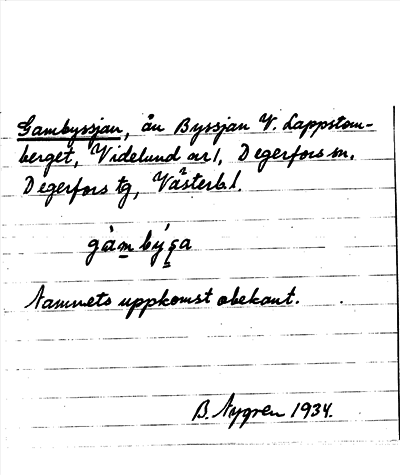 Gambyssjan, ån Byssjan V. Lappstom-
berget, Videlund nr 1, Degerfors sn,
Degerfors tg, Västerb. l.
gàm býʂa
Namnets uppkomst obekant.
B. Nygren 1934.